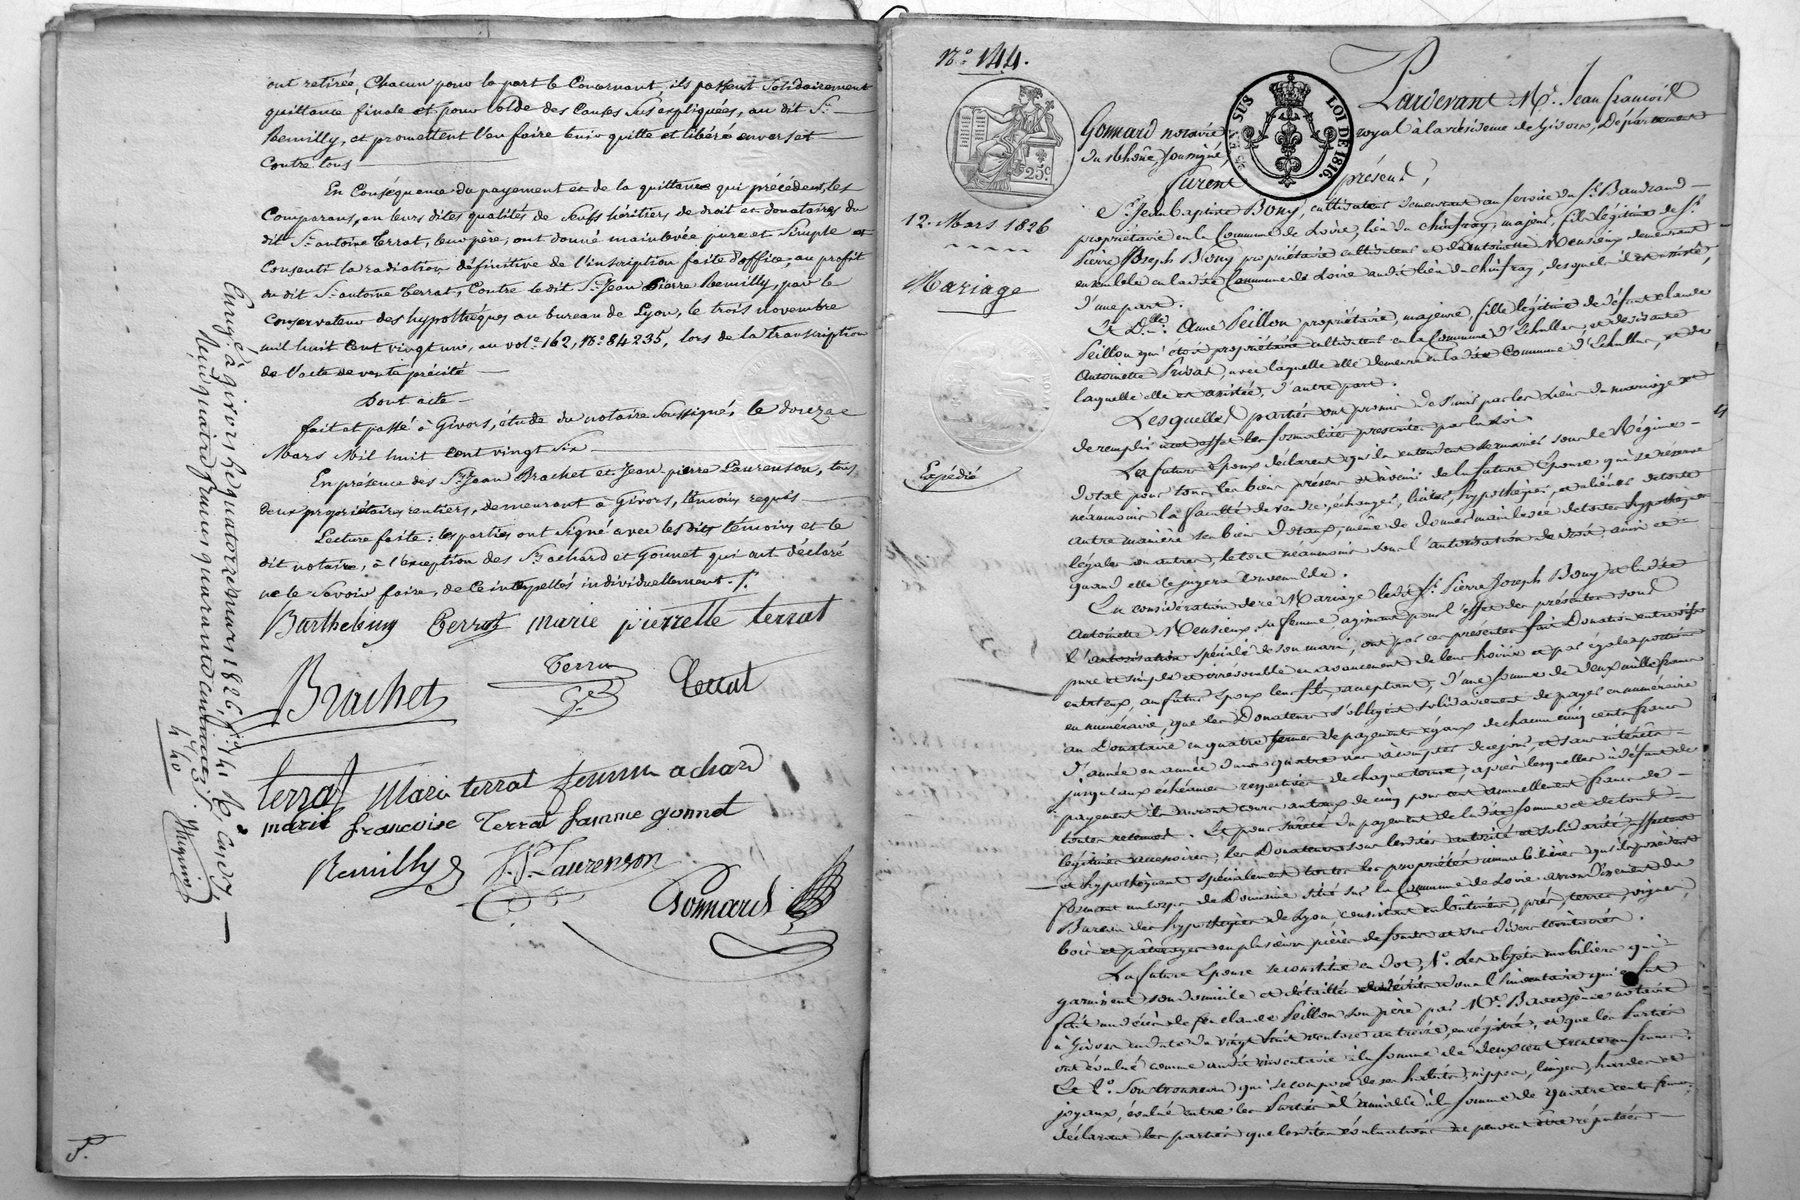 ont retirée, Chacun pour la part le Concernant, ils passent Solidairement
quittance finale et pour Solde des Causes Sus expliquées, au dit Sr
Remilly, et promettent l'en faire tenir quitte et libéré envers et
Contre tous
En Conséquence du payement et de la quittance qui précédent, les
Comparans, en leurs dites qualités de Seuls héritiers de droit et donataires du
dit Sr antoine Terrat, leur père, ont donné mainlevée pure et Simple et
Consenti la radiation définitive de l'inscription faite d'office, au profit
du dit Sr antoine Terrat, Contre le dit Sr Jean Pierre Remilly, par le
Conservateur des hypothèques au bureau de Lyon, le trois novembre
mil huit Cent vingt un, au vol. 162, No. 84235, lors de la transcription
de l'acte de vente précité
Dont acte
fait et passé à Givors, étude du notaire Soussigné, le douze
Mars Mil huit Cent vingt Six
En présence des Srs Jean Brachet et Jean-pierre Laurenson, tous
deux propriétaires rentiers, demeurant à Givors, témoins requis
Lecture faite : les parties ont Signé avec les dits témoins et le
dit notaire, à l'exception des Srs achard et Gonnet qui ont déclaré
ne le Savoir faire, de ce interpellés individuellement.
Barthelmy Terrat marie pierrette terrat
Brachet Terrat
terrat Marie terrat femme achard
marie francoise Terrat famme gonnet
Remilly J. P. Laurenson
Gonnard
Enregé à givors le quatorze mars 1826, fo. 141
Reçu quatre francs quarante centimes
4 40
No. 144.
12. Mars 1826
Mariage
Expédié
25c.
25 C. EN SUS
LOI DE 1816.
Pardevant Me. Jean françois
Gonnard notaire royal à la résidence de Givors, Département
du Rhône, Soussigné,
furent présens,
Sr. Jean Baptiste Bony, cultivateur demeurant au service du Sr. Baudrand
propriétaire en la Commune de Loire, lieu du chinfray, majeur, fils légitime de Sr.
Pierre Joseph Bony propriétaire cultivateur et d'antoinette Meusieux demeurant
ensemble en la dite Commune de Loire au dit lieu du chinfray, desquels il est assisté,
d'une part.
Et Dlle. Anne Peillon propriétaire, majeure, fille légitime de défunt claude
Peillon qui étoit propriétaire cultivateur en la Commune d'Echallas, et de vivante
Antoinette Privat, avec laquelle elle demeure en la dite Commune d'Echallas, et de
laquelle elle est assistée, d'autre part.
Lesquelles parties ont promis de s'unir par les Liens du mariage et
de remplir à cet effet les formalités prescrites par la Loi.
Les futurs Epoux déclarent qu'ils entendent se marier sous le Régime
Dotal pour tous les biens présens et à venir de la future Epouse qui se réserve
néanmoins la faculté de vendre, échanger, liciter, hypothéquer, et aliéner de toute
autre manière ses biens Dotaux, même de donner mainlevée de toutes hypothèques
légales ou autres, le tout néanmoins sous l'autorisation de droit, ainsi et
quand elle le jugera convenable.
En considération de ce Mariage ledit Sr. Pierre Joseph Bony et ladite
Antoinette Meusieux, sa femme, agissant pour l'effet des présentes sous
l'autorisation spéciale de son mari, ont par ces présentes fait Donation entrevifs
pure et simple et irrévocable en avancement de leur hoirie et par égales portions
entr'eux, au futur Epoux leur fils, acceptant, d'une somme de deux mille francs
en numéraire, que les Donateurs s'obligent solidairement de payer en numéraire
au Donataire en quatre termes de payements égaux de chacun cinq cents francs
d'année en année dans quatre ans à compter de ce jour, et sans intérêts
jusqu'aux échéances respectives de chaque terme, après lesquelles à défaut de
payement ils auront cours au taux de cinq pour cent annuellement francs de
toutes retenues. Et pour sûreté du payement de la dite somme et de tous
légitimes accessoires, les Donateurs sous lesdites autorité et solidarité affectent
et hypothèquent spécialement toutes les propriétés immobilières qu'ils possèdent
formant un corps de Domaine situé sur la Commune de Loire arrondissement du
Bureau des hypothèques de Lyon, consistant en bâtimens, prés, terres, vignes,
bois et pâturages en plusieurs pièces de fonds et sur divers territoires.
La future Epouse se constitue en dot, 1o. Les objets mobiliers qui
garnissent son domicile et détaillés dans l'inventaire qui en fut
fait au décès de feu claude Peillon son père par Me. notaire
à Givors en date du vingt huit ventose an treize, enregistré, et que les Parties
ont évalué comme audit inventaire à la somme de deux cent trente un francs.
Et 2o. Son trousseau qui se compose de ses habits, nippes, linges, hardes et
joyaux, évalué entre les Parties à l'amiable à la somme de quatre cents francs,
déclarant les parties que lesdites évaluations ne peuvent être réputées